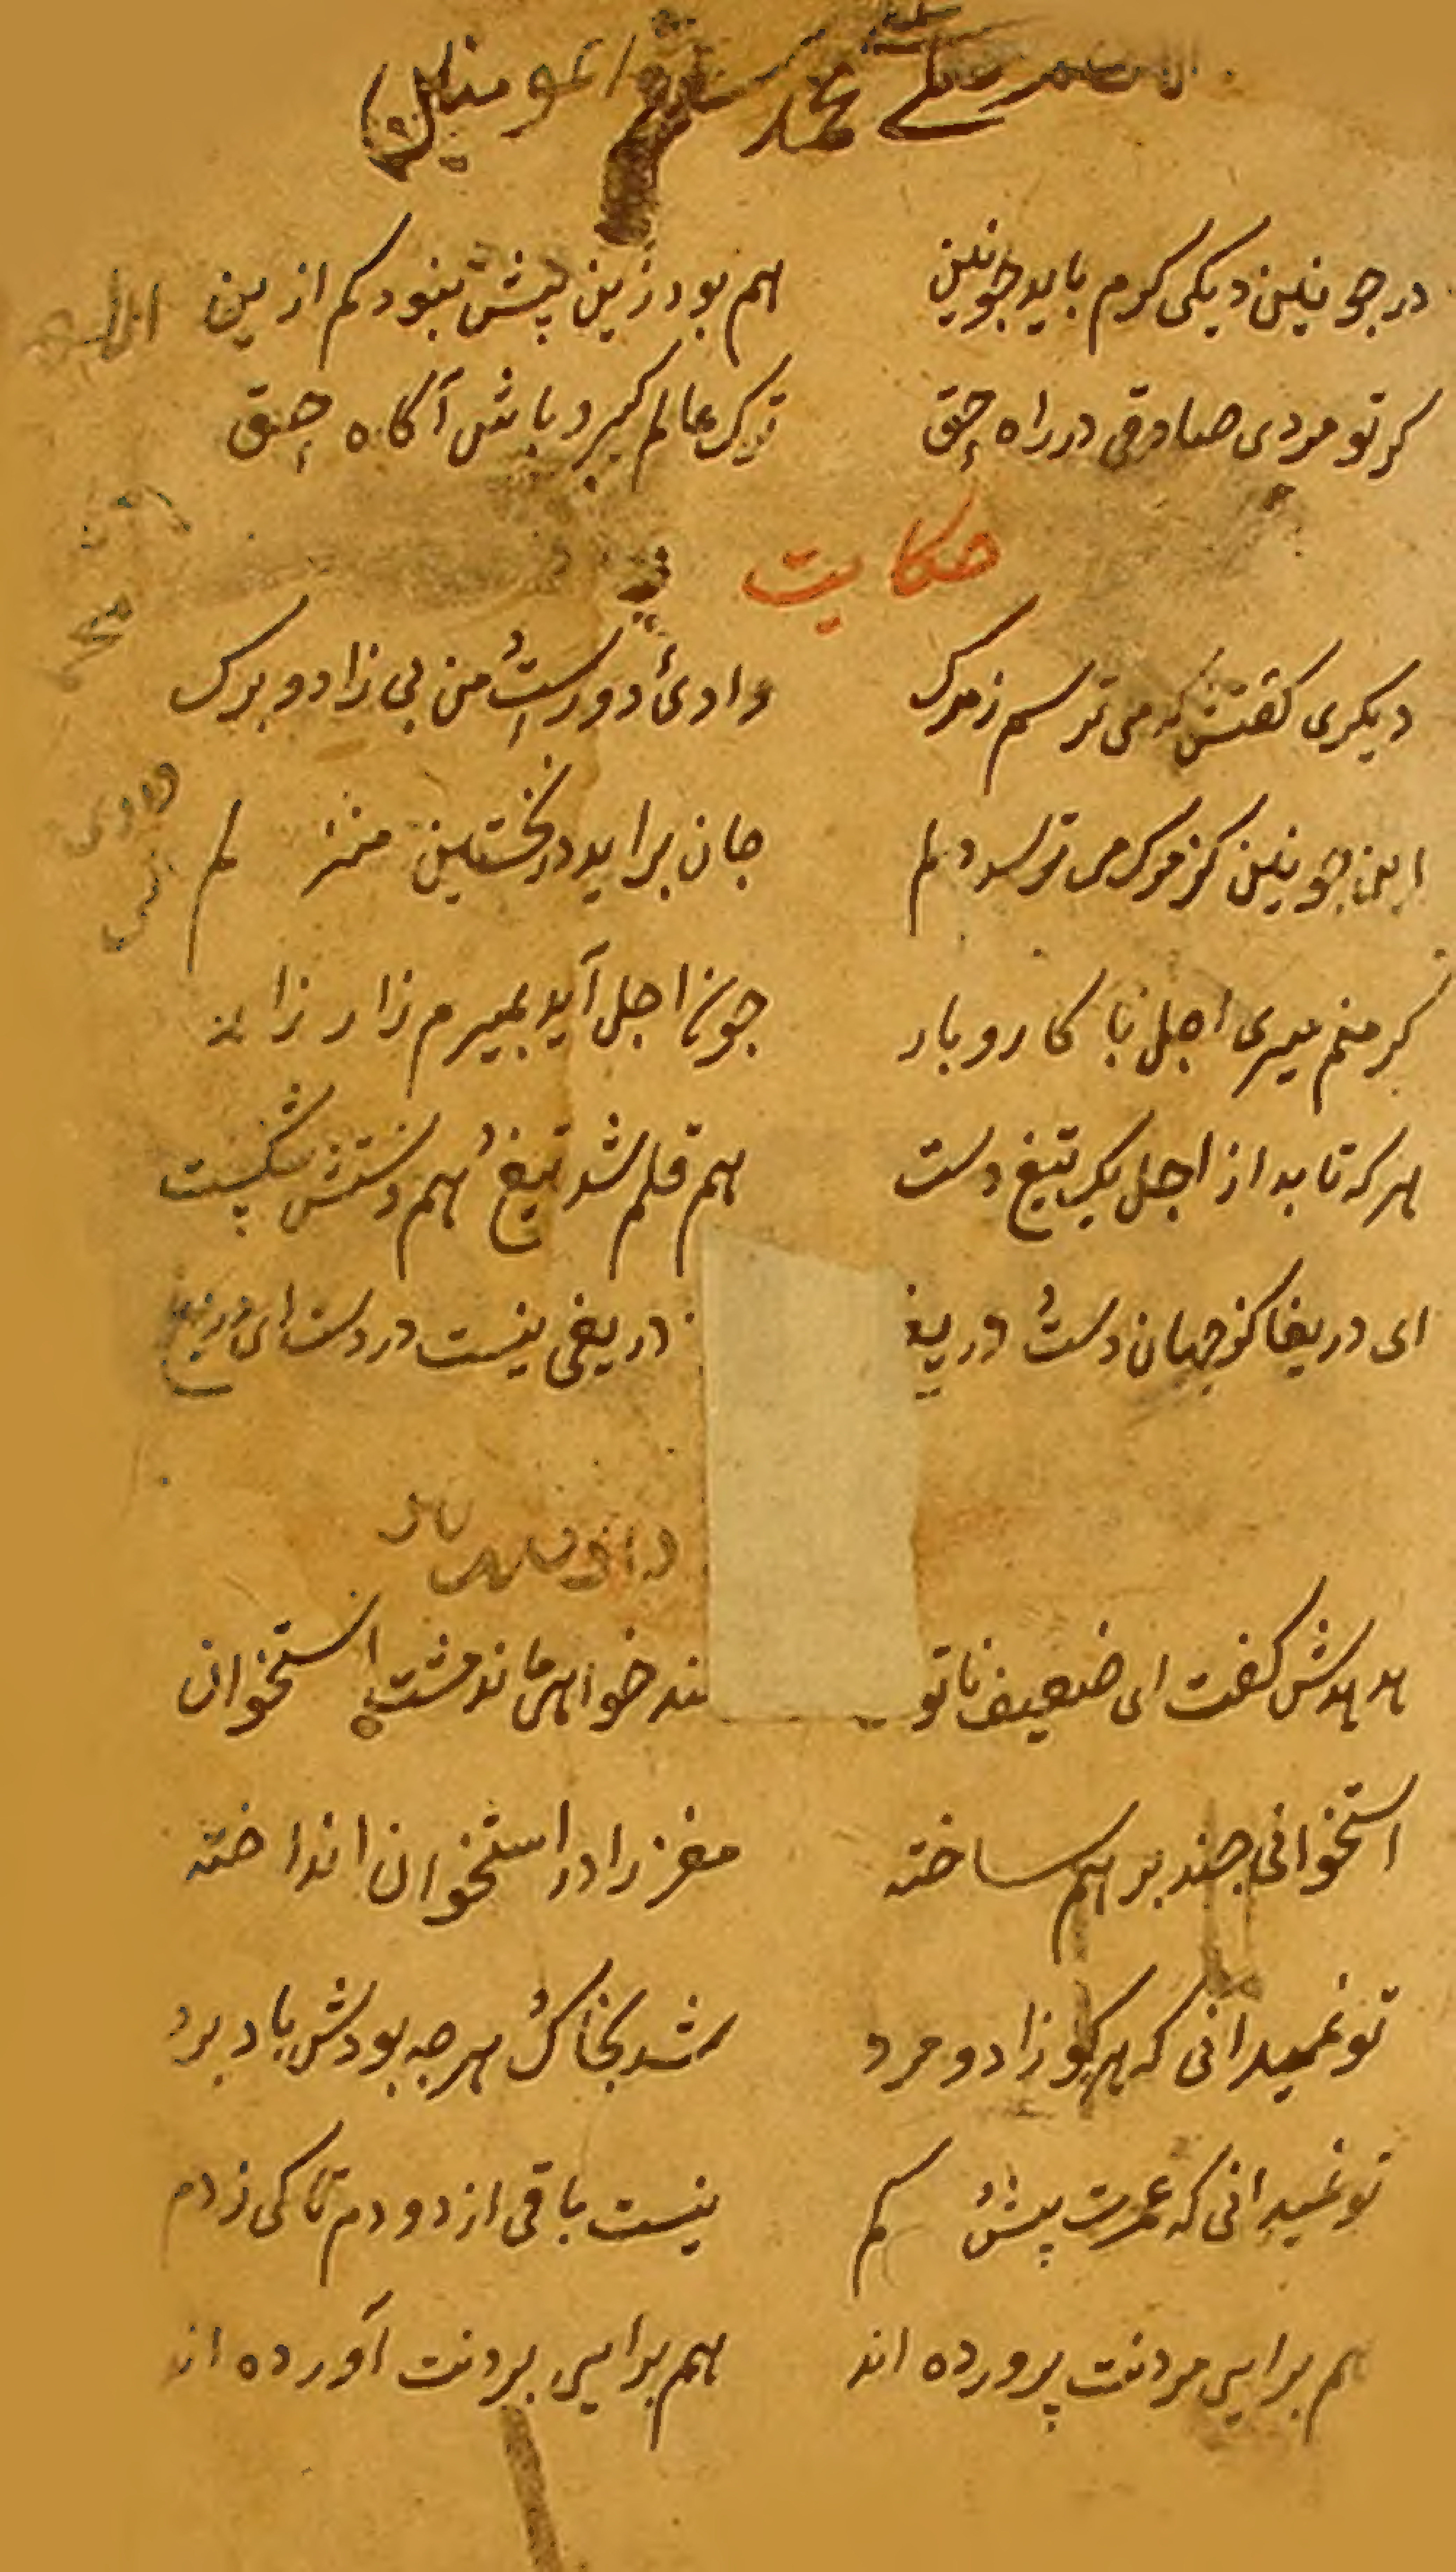 محمد
در جونین دیکی کرم باید جونین هم بود زین پیش نبود کم ازین
کر تو مردی صادقی در راه حق ترک عالم کیر و باش آکاه حق
حکایت
دیکری کفتش که می ترسم ز مرک وادئ دورست من بی زاد و برک
این جونین کز مرک می ترسد دلم جان براید در نخستین منزلم
کر منم میری اجل با کار و بار جون اجل آید بمیرم زار زار
هر که تا بد از اجل یک تیغ دست هم قلم شد تیغ هم دستش شکست
ای دریغا کز جهان دست و دریغ دریغی نیست در دست ای دریغ
هدهدش کفت ای ضعیف ناتو ند خواهی ماند مشت استخوان
استخوانی جند بر هم ساخته مغز را در استخوان انداخته
تو نمیدانی که هر کو زاد و مرد شد بخاک هرجه بودش باد برد
تو نمیدانی که عمرت پیش کم نیست باقی از دو دم تا کی ز دم
هم برای مردنت پرورده اند هم برای بردنت آورده اند